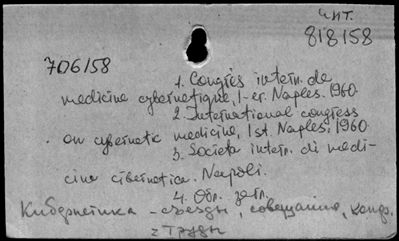 чит.
818158
706158
1. Congrès intern. de
medicine cybernetique, 1-er. Naples. 1960.
2. International congress
on cybernetic medicine, 1st. Naples. 1960
3. Societa intern. di medi-
cina cibernetica. Napoli.
4. Обл. загл.
Кибернетика - съезды, совещания, конф.
2 Труды